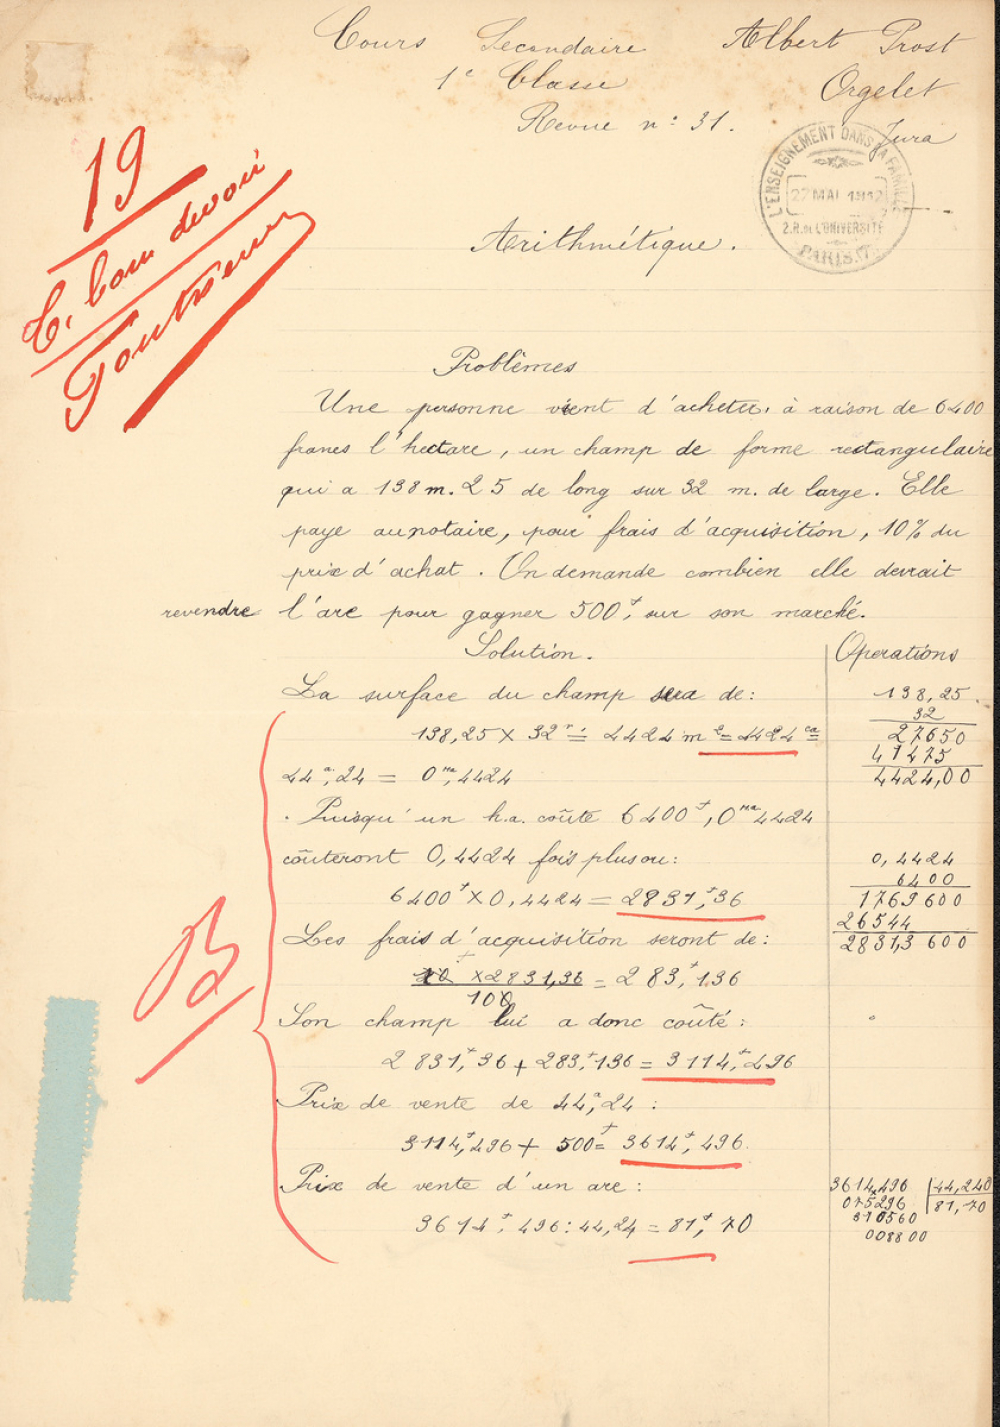 Cours Secondaire Albert Prost
1e Classe Orgelet
Revue n° 31. Jura
L'ENSEIGNEMENT DANS LA FAMILLE
22 MAI 1912
2.R. de L'UNIVERSITÉ
PARIS.
19
T. bon devoir
Arithmétique.
Problèmes
Une personne vient d'acheter, à raison de 6400
francs l'hectare, un champ de forme rectangulaire
qui a 138m.25 de long sur 32 m. de large. Elle
paye au notaire, pour frais d'acquisition, 10% du
prix d'achat. On demande combien elle devrait
revendre l'are pour gagner 500f, sur son marché.
Solution.
La surface du champ sera de:
138,25 × 32 = 4424 m² = 4424 ca =
44a,24 = 0ha,4424
Puisqu'un h.a. coûte 6400f, 0ha4424
coûteront 0,4424 fois plus ou:
6400f × 0,4424 = 2831f,36
Les frais d'acquisition seront de:
10 × 2831,36 = 283f,136
100
Son champ lui a donc coûté:
2831f,36 + 283f,136 = 3114f,496
Prix de vente de 44a,24:
3114f,496 + 500f = 3614f,496.
Prix de vente d'un are:
3614f,496 : 44,24 = 81f,70
B
Operations
138,25
32
27650
41475
4424,00
0,4424
6400
1769600
26544
2831,3600
3614,496 44,240
075296 81,70
310560
008800